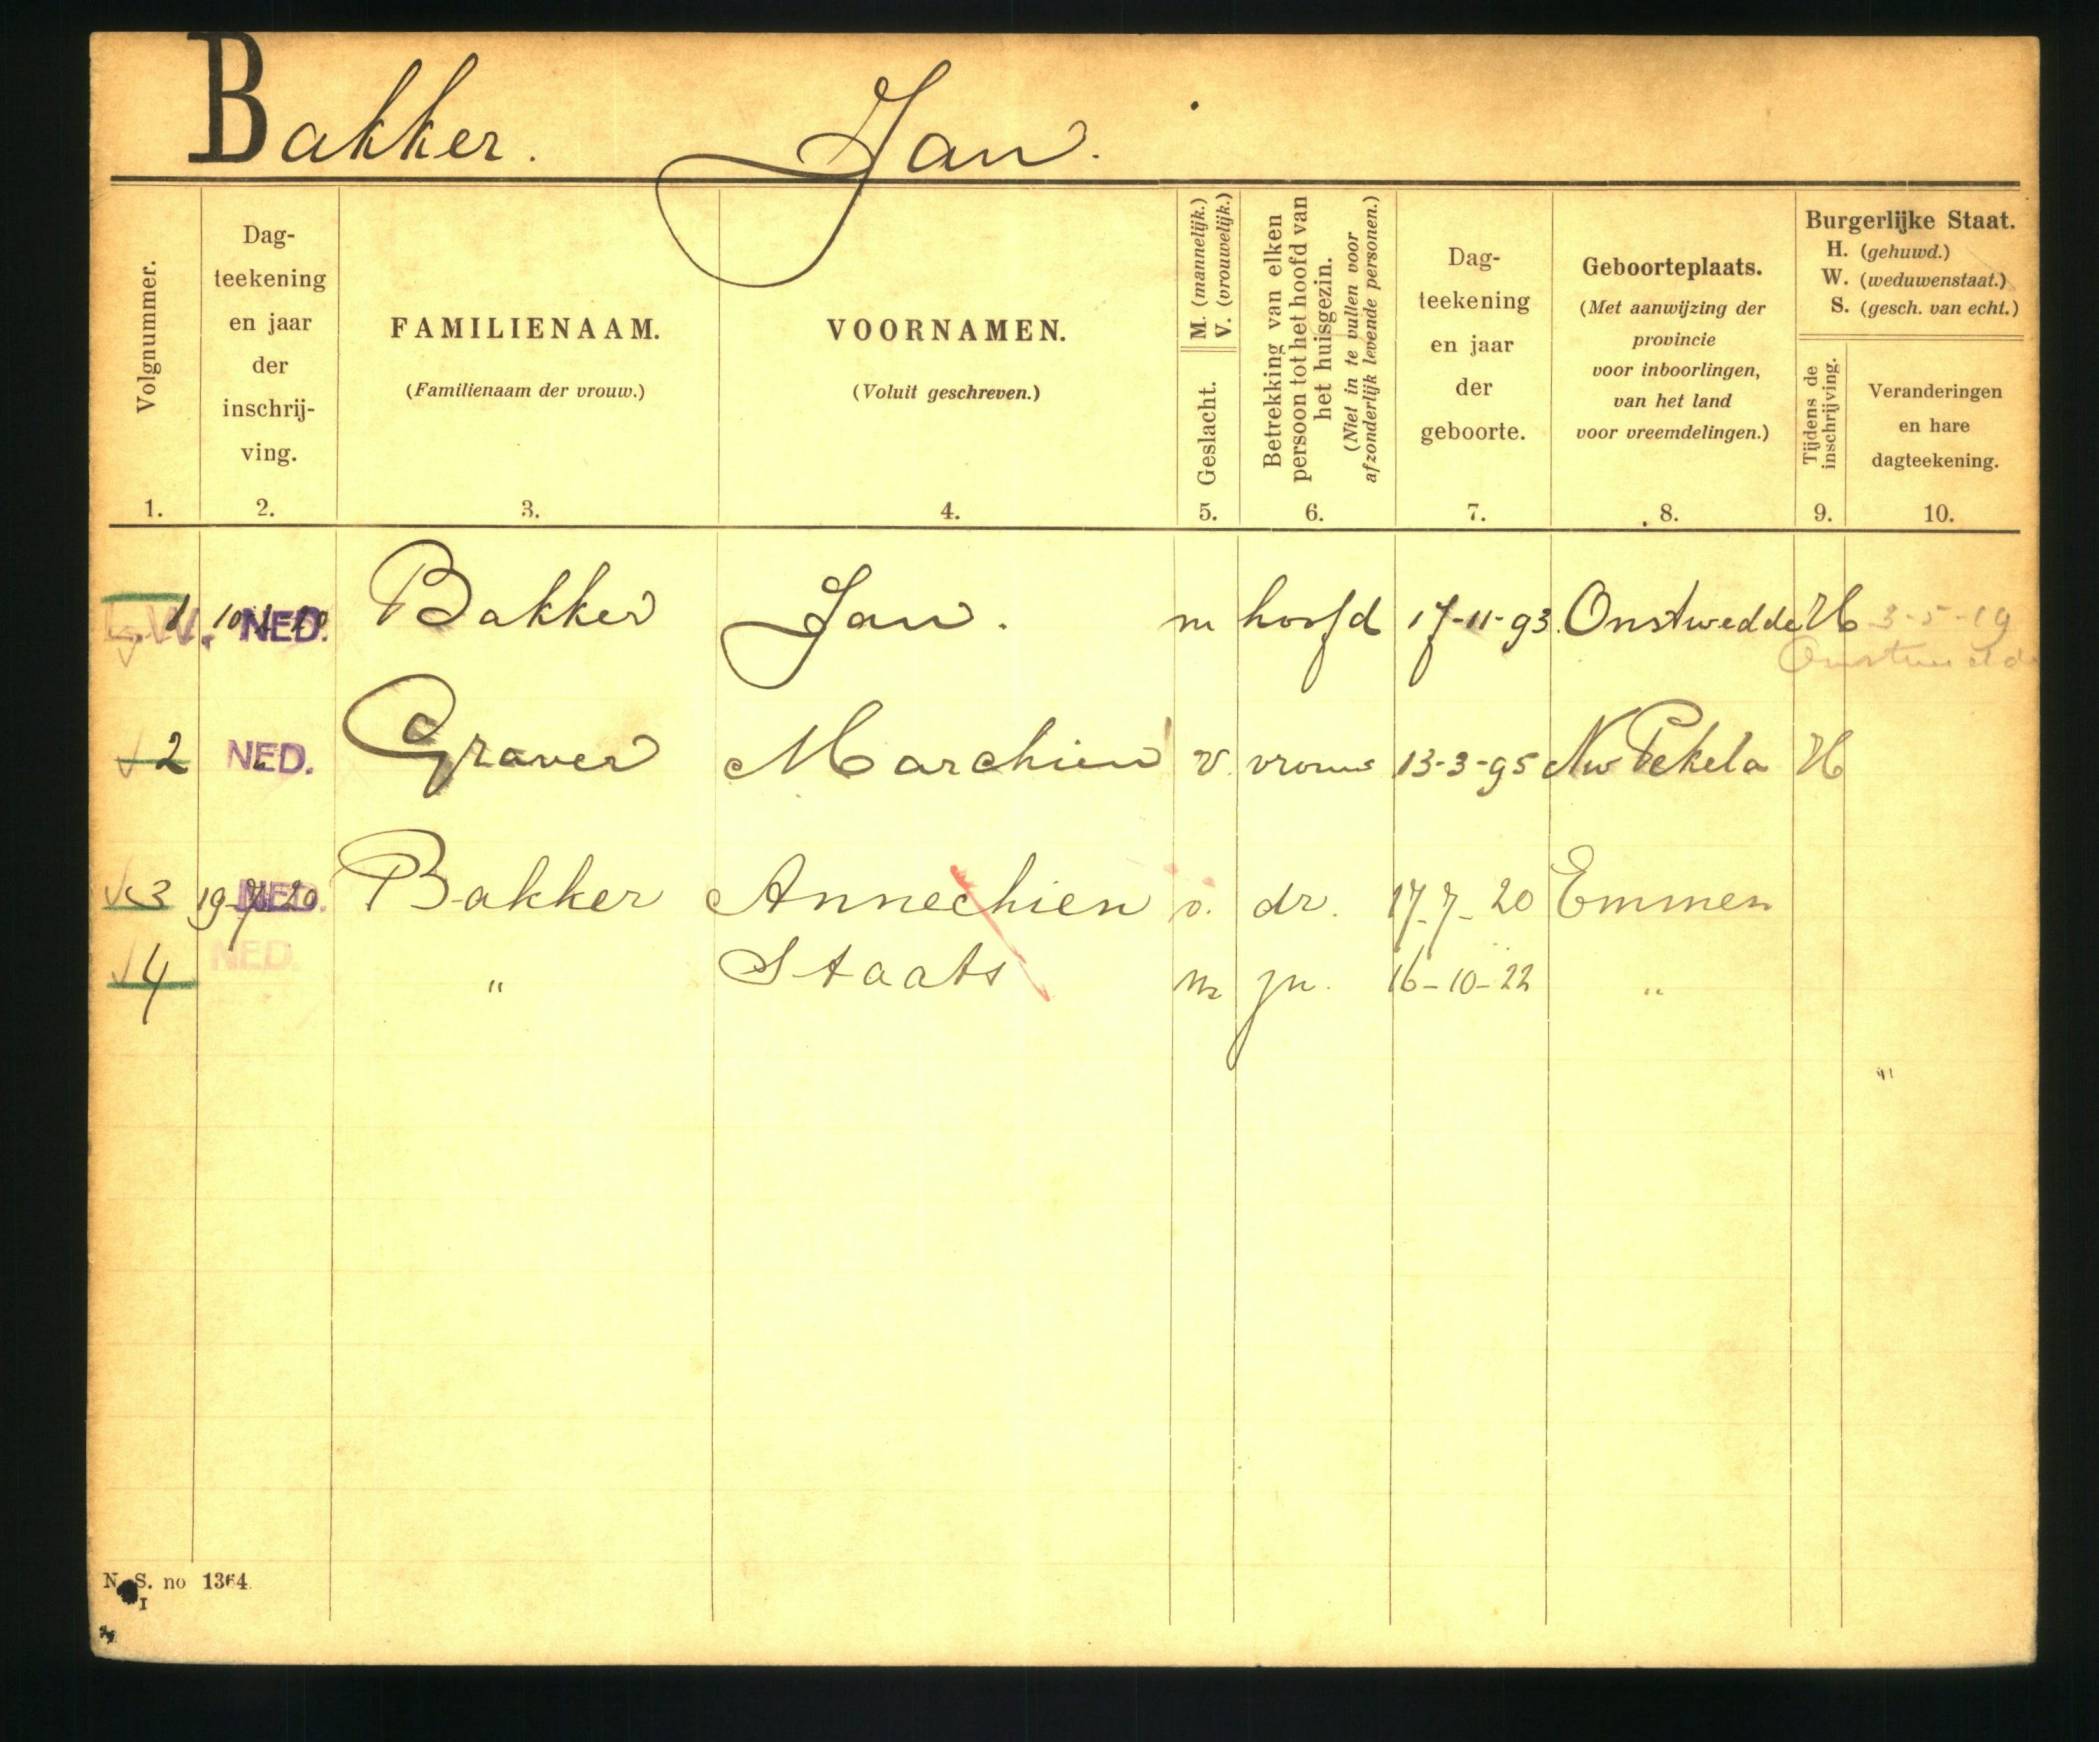 Bakker. Jan.
Volgnummer.
1.
Dag-
teekening
en jaar
der
inschrij-
ving.
2.
FAMILIENAAM.
(Familienaam der vrouw.)
3.
VOORNAMEN.
(Voluit geschreven.)
4.
M. (mannelijk.)
V. (vrouwelijk.)
Geslacht.
5.
Betrekking van elken
persoon tot het hoofd van
het huisgezin.
(Niet in te vullen voor
afzonderlijk levende personen.)
6.
Dag-
teekening
en jaar
der
geboorte.
7.
Geboorteplaats.
(Met aanwijzing der
provincie
voor inboorlingen,
van het land
voor vreemdelingen.)
8.
Burgerlijke Staat.
H. (gehuwd.)
W. (weduwenstaat.)
S. (gesch. van echt.)
Tijdens de
inschrijving.
9.
Veranderingen
en hare
dagteekening.
10.
1 NED. Bakker Jan. m hoofd 17-11-93. Onstwedde H 3-5-19
Onstwedde
2 NED. Graver Marchien v. vrouw 13-3-95 Nw Pekela H
3 19-7-20 NED. Bakker Annechien v. dr. 17-7-20 Emmen
4 NED. " Staats m zn. 16-10-22 "
N. S. no 1364
I